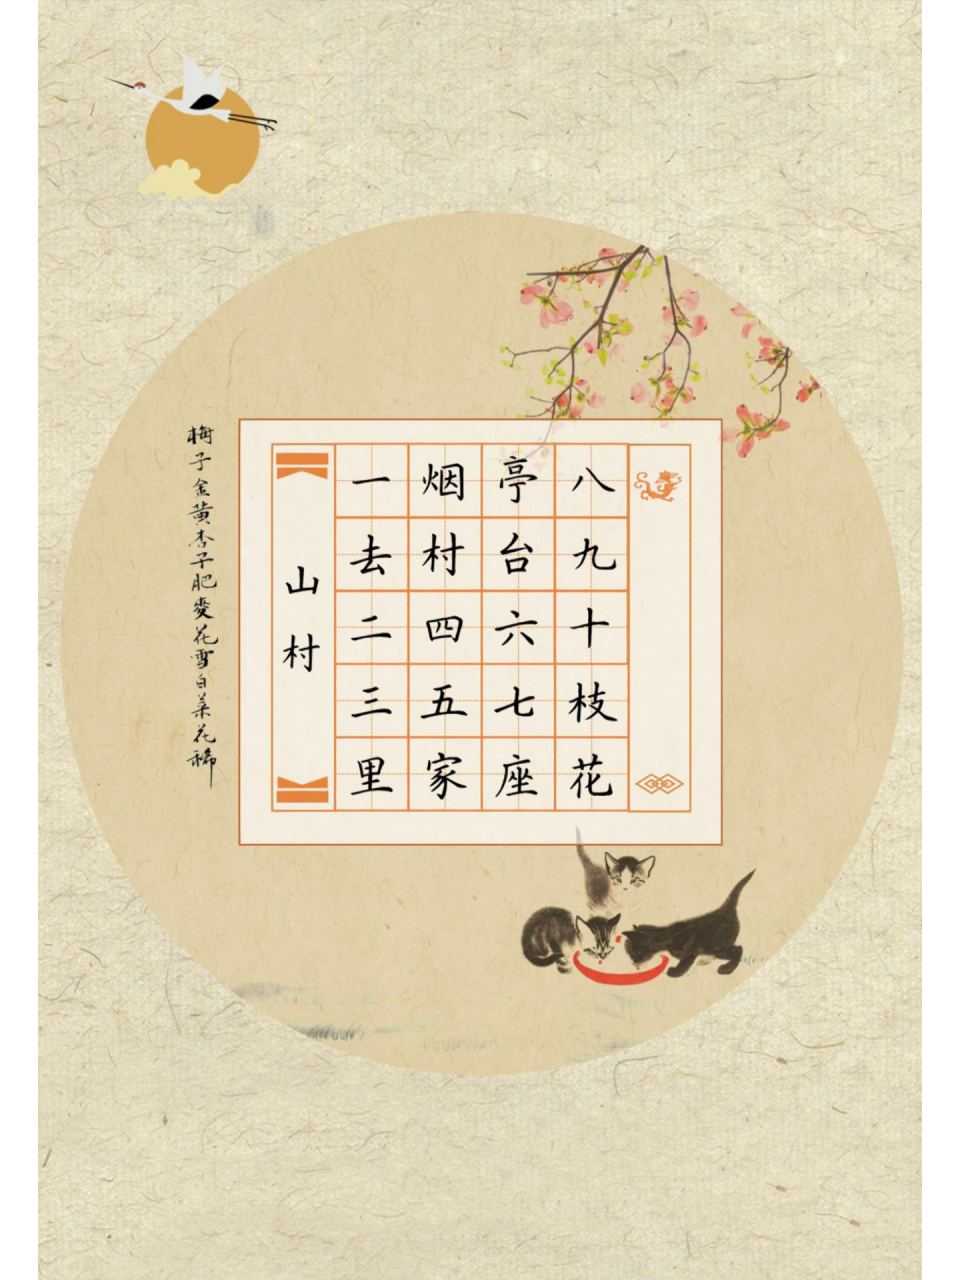 山村
一去二三里
烟村四五家
亭台六七座
八九十枝花
梅子金黄杏子肥麥花雪白菜花稀